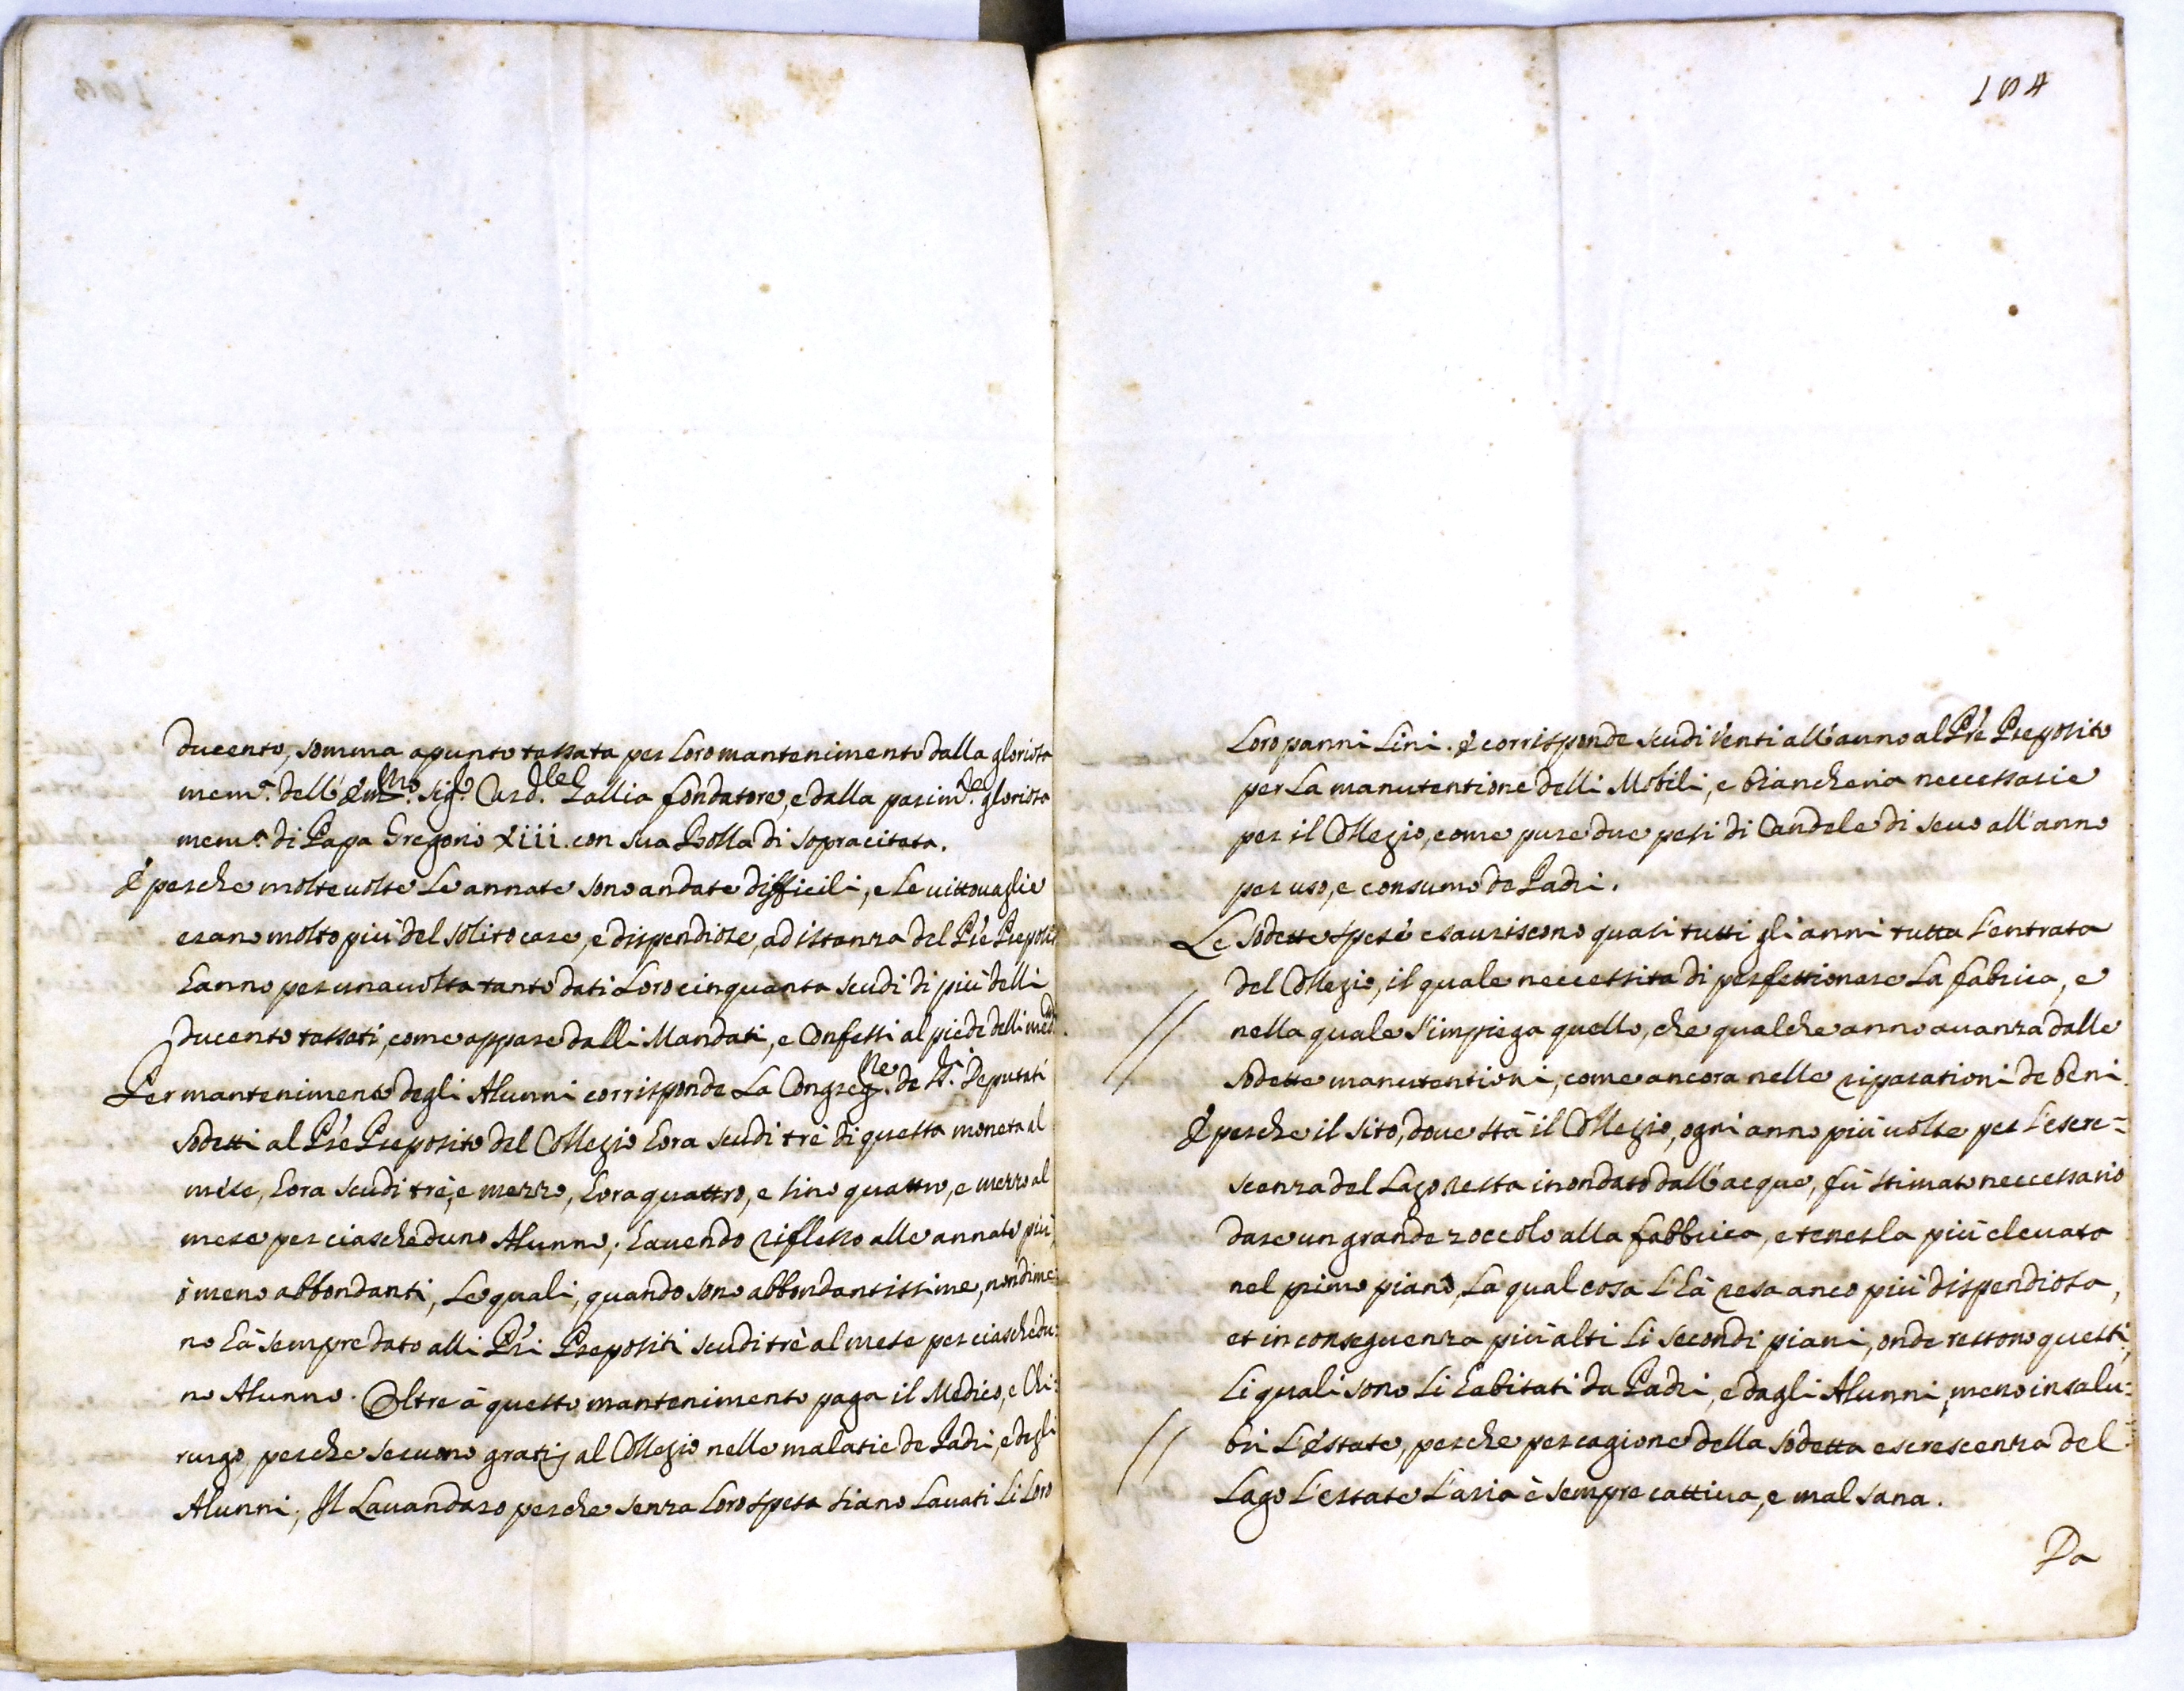 ducento, somma apunto tassata per Loro mantenimento dalla gloriosa
mem.a dell'Em.mo Sig.r Card.le Gallio fondatore, e dalla parim.te gloriosa
mem.a di Papa Gregorio XIII. con sua Bolla di sopracitata.
E perche molte uolte Le annate sono andate difficili, e Le uittouaglie
erano molto più del solito care, e dispendiose, ad istanza del P're Preposito
hanno per una uolta tanto dati Loro cinquanta scudi di più delli
ducento tassati, come appare dalli Mandati, e Confessi al piede delli med.mi
Per mantenimento degli Alunni corrisponde La Congreg.ne de SS.ri Deputati
sodetti al P're Preposito del Collegio hora scudi trè di questa moneta al
mese, hora scudi trè, e mezzo, hora quattro, e sino quattro, e mezzo al
mese per ciascheduno Alunno; hauendo riflesso alle annate più,
ò meno abbondanti, Le quali, quando sono abbondantissime, nondime=
no hà sempre dato alli P'ri Prepositi scudi trè al mese per ciaschedu=
no Alunno. Oltre à questo mantenimento paga il Medico, e Chi=
rurgo, perche seruono gratis al Collegio nelle malatie de Padri, e degli
Alunni; Il Lauandaro perche senza Loro spesa siano Lauati Li Loro
104
Loro panni Lini. E corrisponde scudi venti all'anno al P're Preposito
per La manutentione delli Mobili, e biancheria neccessarie
per il Collegio, come pure due pesi di Candele di seuo all'anno
per uso, e consumo de Padri.
Le sodette spese esauriscono quasi tutti gli anni tutta L'entrata
del Collegio, il quale neccessita di perfettionare La fabrica, e
// nella quale s'impiega quello, che qualche anno auanza dalle
sodette manutentioni, come ancora nelle riparationi de beni.
E perche il sito, doue stà il Collegio, ogni anno più uolte per L'escre=
scenza del Lago resta inondato dall'acque, fù stimato neccessario
dare un grande zoccolo alla fabbrica, e tenerla più eleuata
nel primo piano, La qual cosa L'hà resa anco più dispendiosa,
et in conseguenza più alti Li secondi piani, onde restono questi,
Li quali sono Li habitati da Padri, e dagli Alunni, meno insalu=
// bri L'estate, perche per cagione della sodetta escrescenza del
Lago L'estate L'aria è sempre cattiua, e mal sana.
Da